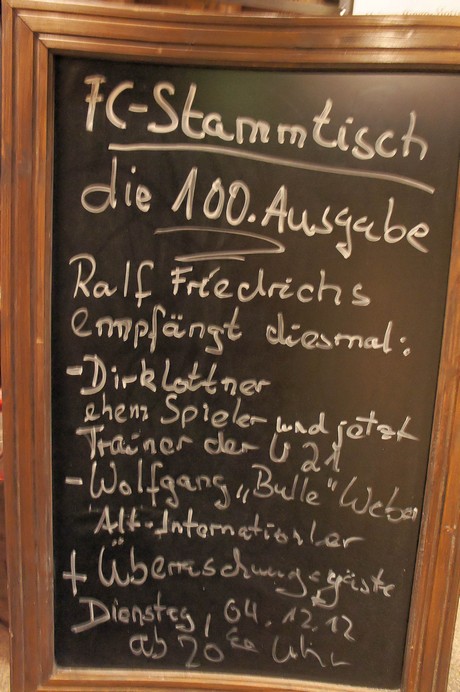 FC-Stammtisch
die 100. Ausgabe
Ralf Friedrichs
empfängt diesmal:
- Dirk Lottner
ehem Spieler und jetzt
Trainer der U 21
- Wolfgang „Bulle“ Weber
Alt-Internationaler
+ Überraschungsgäste
Dienstag, 04.12.12
ab 20 Uhr